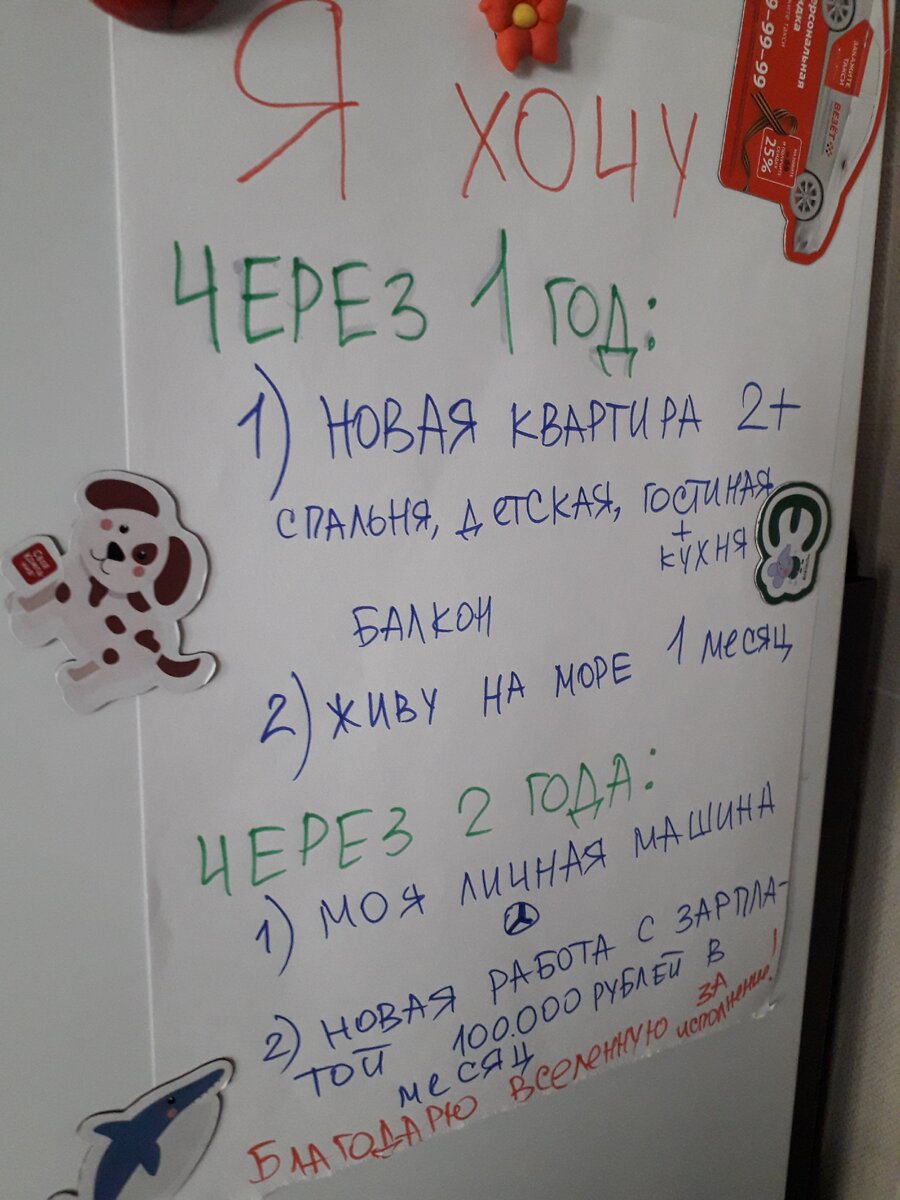 Я ХОЧУ
ЧЕРЕЗ 1 ГОД:
1) НОВАЯ КВАРТИРА 2+
СПАЛЬНЯ, ДЕТСКАЯ, ГОСТИНАЯ
+
КУХНЯ
БАЛКОН
2) ЖИВУ НА МОРЕ 1 МЕСЯЦ
ЧЕРЕЗ 2 ГОДА:
1) МОЯ ЛИЧНАЯ МАШИНА
2) НОВАЯ РАБОТА С ЗАРПЛА-
ТОЙ 100.000 РУБЛЕЙ В
МЕСЯЦ
БЛАГОДАРЮ ВСЕЛЕННУЮ ЗА
ИСПОЛНЕНИЕ!
9-99-99
ЗАКАЖИТЕ
ТАКСИ
ВЕЗЁТ
25%
Є